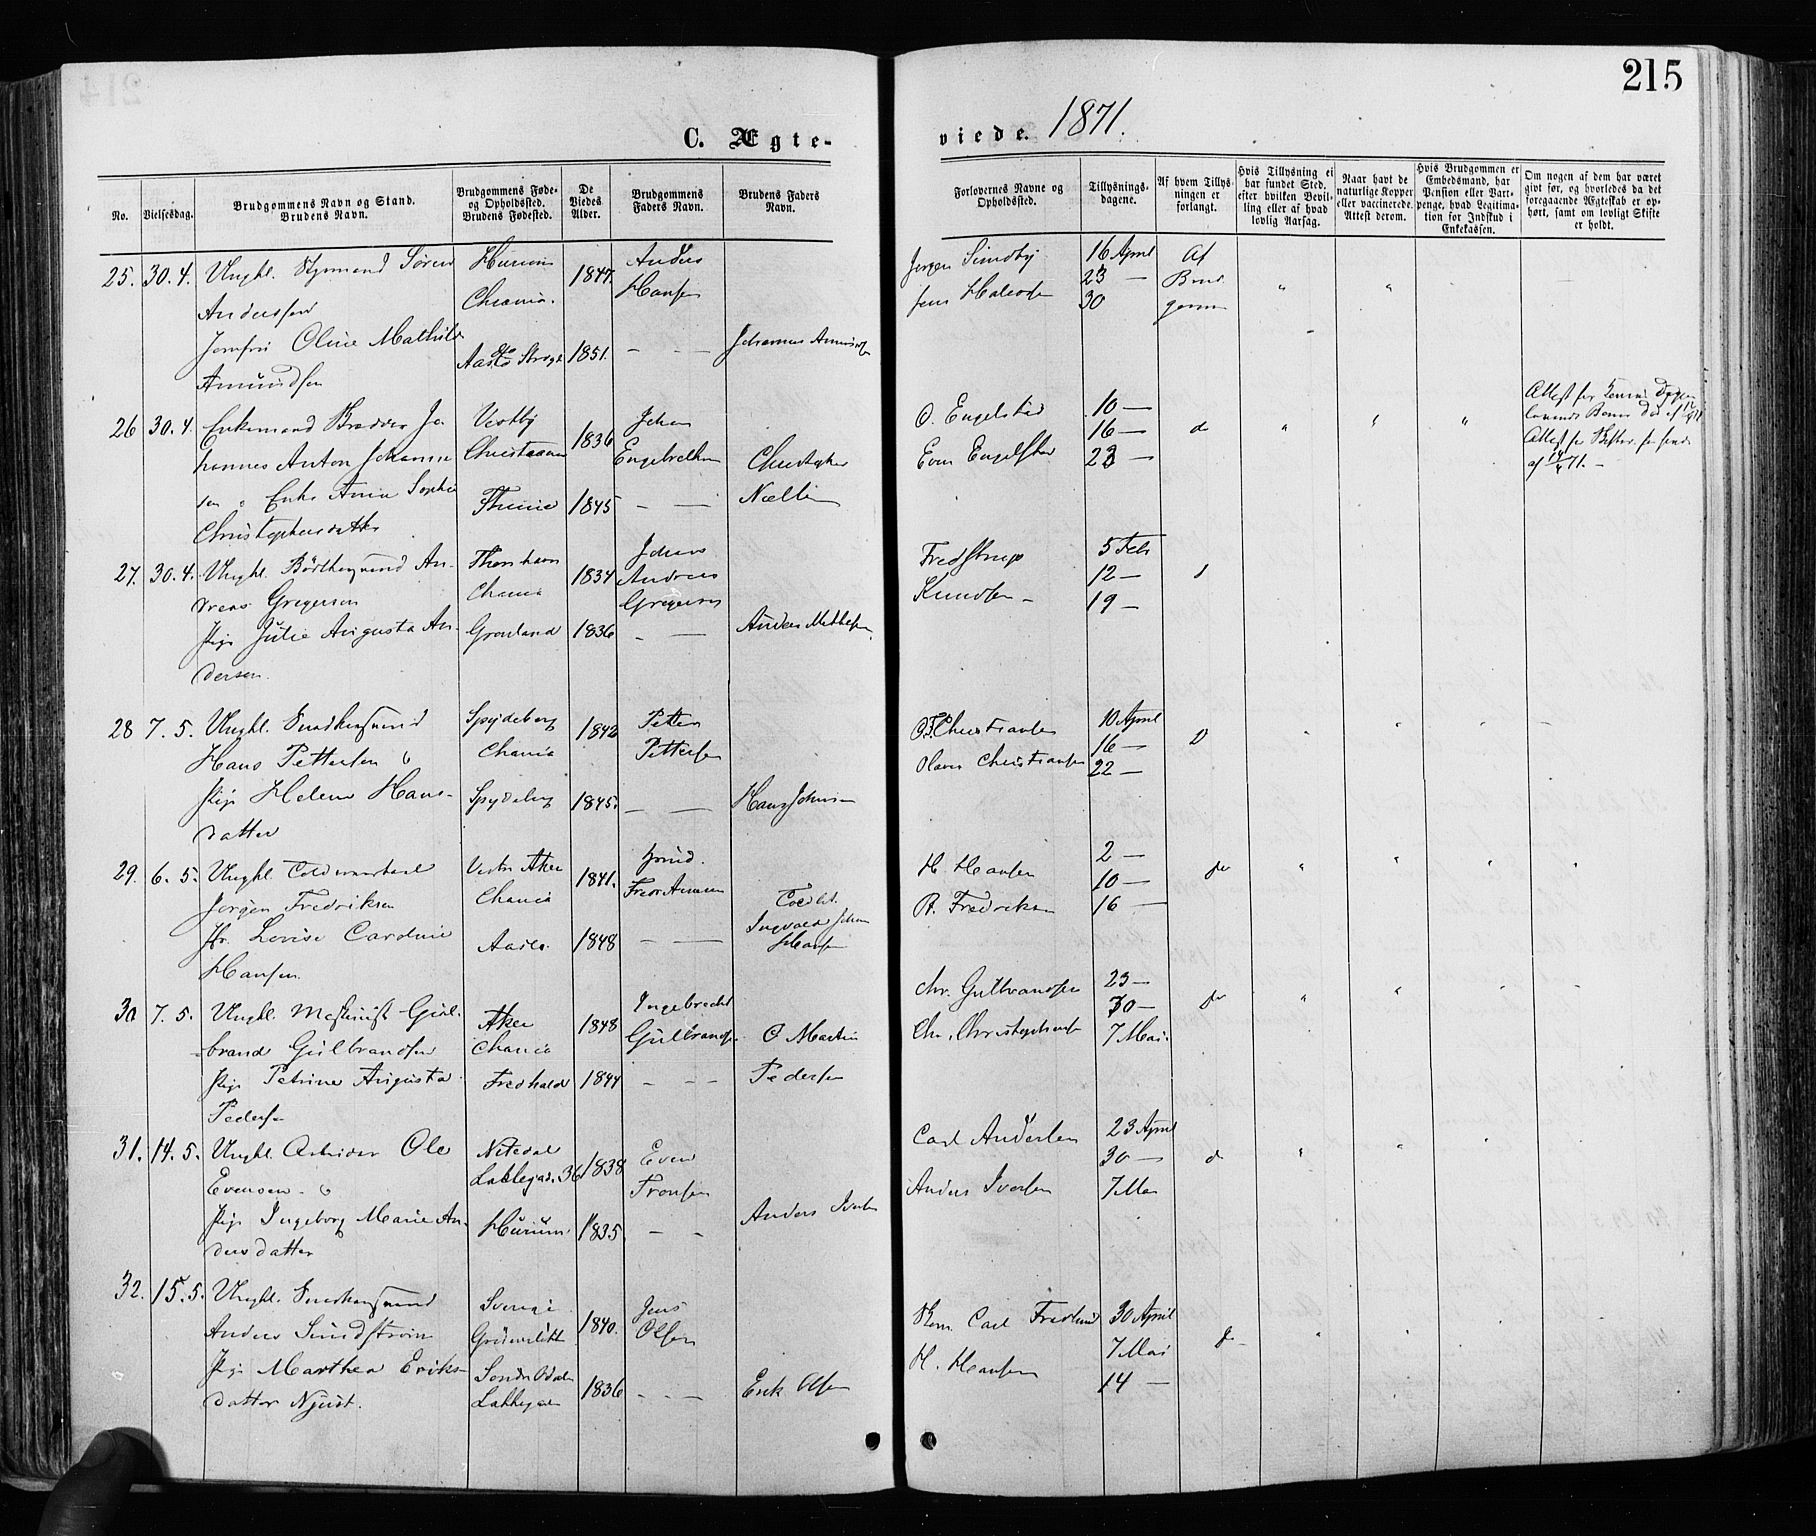 215
C. Ægte-
viede. 1871.
No.
Vielsesdag.
Brudgommens Navn og Stand.
Brudens Navn.
Brudgommens Føde-
og Opholdssted.
Brudens Fødested.
De
Viedes
Alder.
Brudgommens
Faders Navn.
Brudens Faders
Navn.
Forlovernes Navne og
Opholdssted.
Tillysnings-
dagene.
Af hvem Tillys-
ningen er
forlangt.
Hvis Tillysning ei
har fundet Sted,
efter hvilken Bevil-
ling eller af hvad
lovlig Aarsag.
Naar havt de
naturlige Kopper
eller vaccinerede.
Attest derom.
Hvis Brudgommen er
Embedsmand, har
Pension eller Vart-
penge, hvad Legitima-
tion for Indskud i
Enkekassen.
Om nogen af dem har været
givt før, og hvorledes da det
foregaaende Ægteskab er op-
hørt, samt om lovligt Skifte
er holdt.
25. 30. 4. Ungkl. Styrmand Søren
Andersen
Jomfru Oline Mathilde
Amundsen
Hurum
Chrania.
1847.
1851.
Anders
Hansen
Johannes Amundsen
Jørgen Sundby
Jens Halvorsen
16 April
23 —
30
Af
Brud
gommen
26 30. 4. Enkemand Jo
hannes Anton Johanne
sen Enke Anna Sophie
Christophersdatter
Vestby
Christiania
1836
1845
Johan
Engebrethsen
Christopher
O. Engelstad
Even Engelstad
10 —
16 —
23 —
do
Attest for
af 14/4 71. —
27. 30. 4. Ungkl. An-
dreas Gregersen
Pige Julie Augusta An-
dersen.
Chania
Grønland
1834
1836
Johans
Andreas
Gregersen
Anders
Fredstrup
Knudsen —
5 Feb
12 —
19 —
28 7. 5. Ungkl.
Hans Pettersen
Pige Helene Hans-
datter
Spydeberg
Chania
Spydeberg
1842
1845.
Petter
Pettersen
Hans Johnsen
Christiansen
Olaves Christiansen
10 April
16 —
22 —
29. 6. 5. Ungkl.
Jørgen Fredriksen
Jfr. Lovise Caroline
Hansen
Vestre Aker
Chania
1841.
1848
Ingvald Johan
Hansen
H. Hansen
Fredriksen
2 —
10 —
16 —
do
30 7. 5. Ungkl. Maskinist Gul-
brand Gulbrandsen
Pige Petrine Augusta
Pedersen
Aker
Chania
Fredhald
1848
1844
Ingebrecht
Gulbrandsen
O Martin
Pedersen
Chr. Gulbrandsen
Chr. Christophersen
23 —
30 —
7 Mai.
do
31. 14. 5. Ungkl. Arbeider Ole
Evensen
Pige Ingeborg Marie An-
dersdatter
Nitedal
Lakkegad. 36
Hurum
1838
1835.
Even
Tronsen
Anders Iversen
Carl Andersen
Anders Iversen
23 April
30 —
7 Mai
32. 15. 5. Ungkl.
Anders Sundstrøm
Pige Marthea Eriks-
datter Njust.
Sverige
Søndre Odalen
Lakkegaden
1840.
1836
Jens
Olsen
Erik Olsen
Carl Fredlund
H. Hansen
30 April
7 Mai
14 —